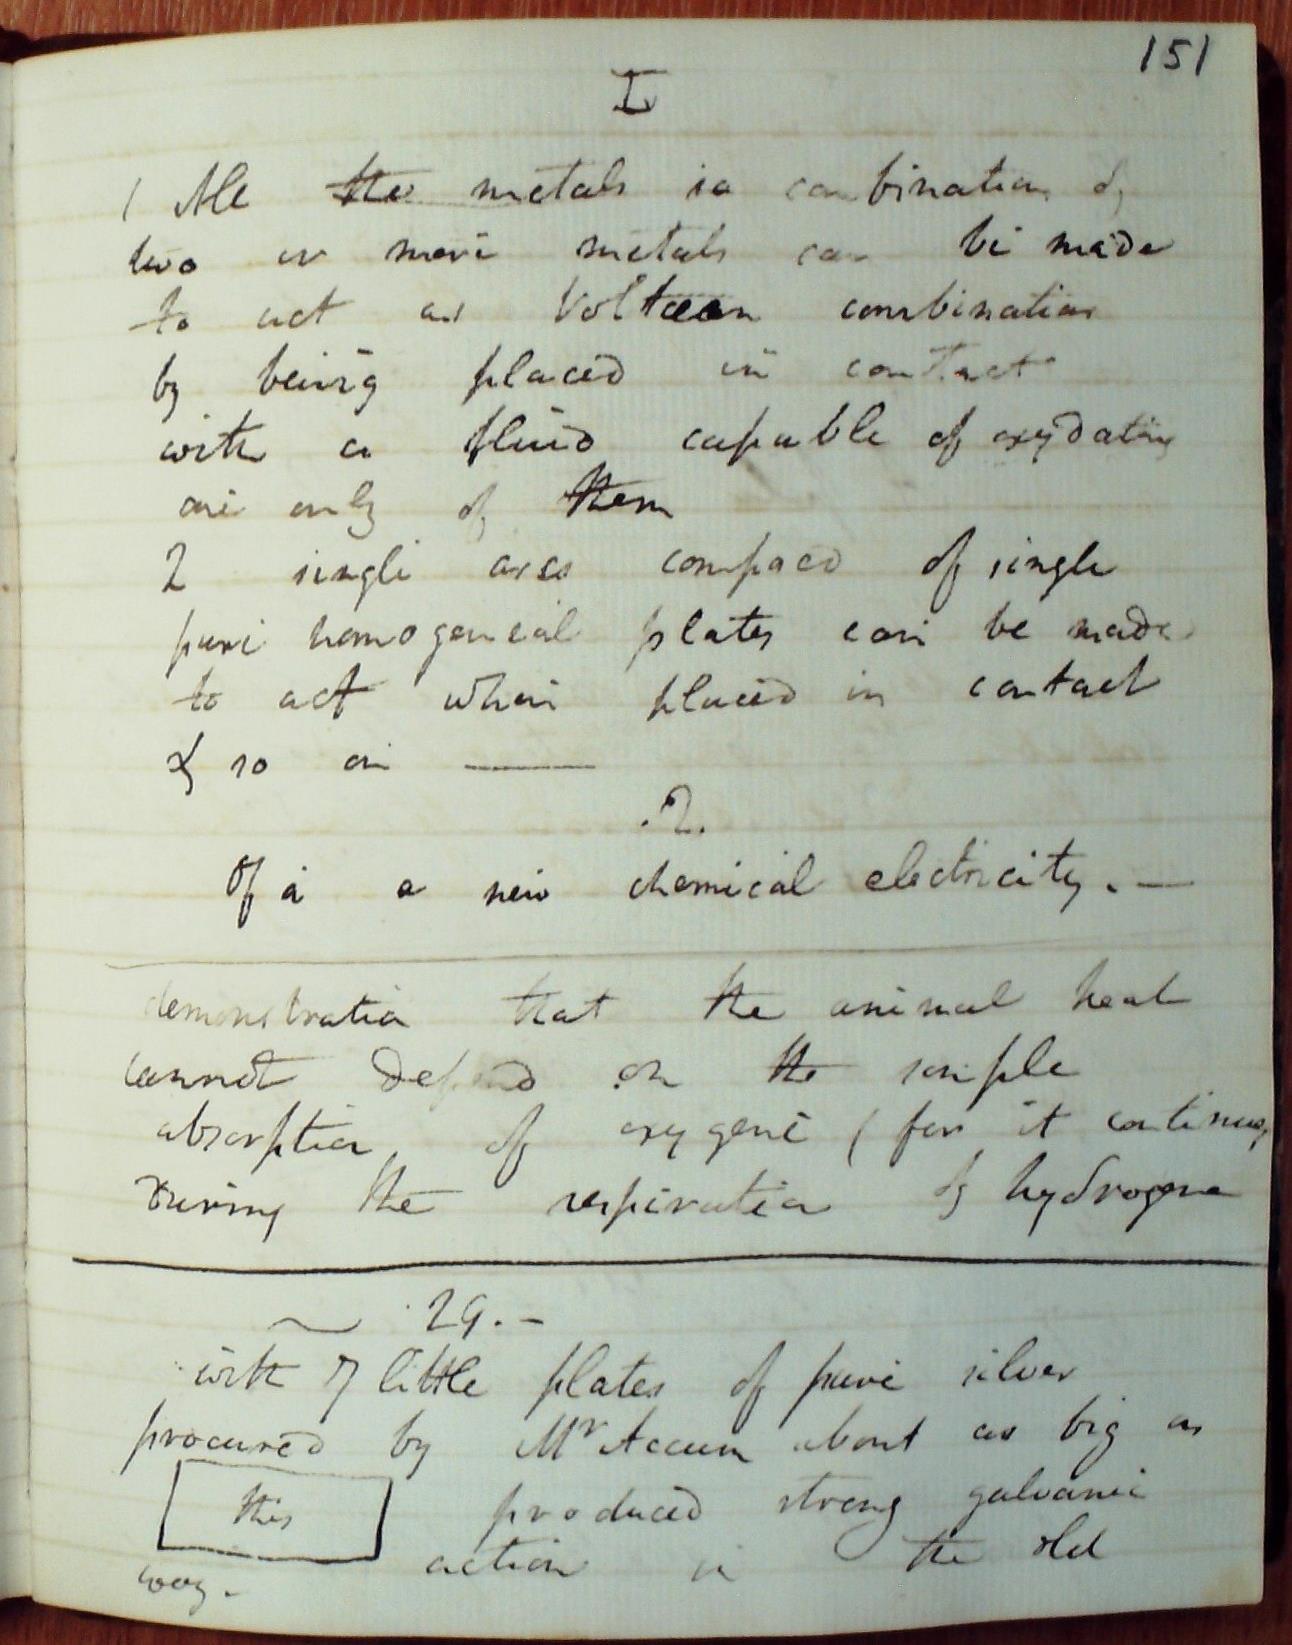 151
I
1 All the metals in combination of
two or more metals can be made
to act as Voltaan combination
by being placed in contact
with a fluid capable of oxydating
one only of them
2 single arcs compaed of single
pure homogeneal plates can be made
to act when placed in contact
& so on ———
.2.
Of a a new chemical electricity. —
demonstration that the animal heat
cannot depend on the simple
absorption of oxygene ( for it continues
during the respiration of hydrogene
29. -
with 7 little plates of pure silver
procured by Mr Accum about as big as
this produced strong galvanic
action in the old
way.